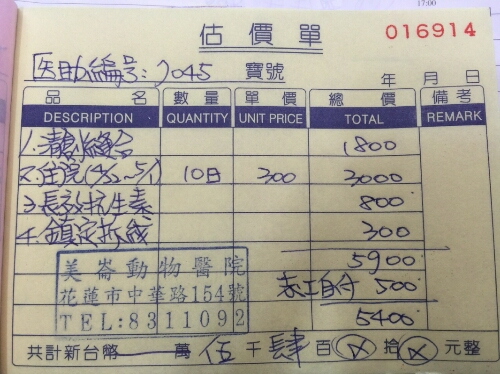 17:00
估價單
016914
医助編號:7045 寶號
年 月 日
品 名 數量 單價 總價 備考
DESCRIPTION QUANTITY UNIT PRICE TOTAL REMARK
1. 清創縫合 1800
2. 住院(4/22~5/1) 10日 300 3000
3. 長效抗生素 800
4. 鎮定拆線 300
5900
志工自付 500
5400
美崙動物醫院
花蓮市中華路154號
TEL:8311092
共計新台幣 萬 伍 千 肆 百 拾 元整